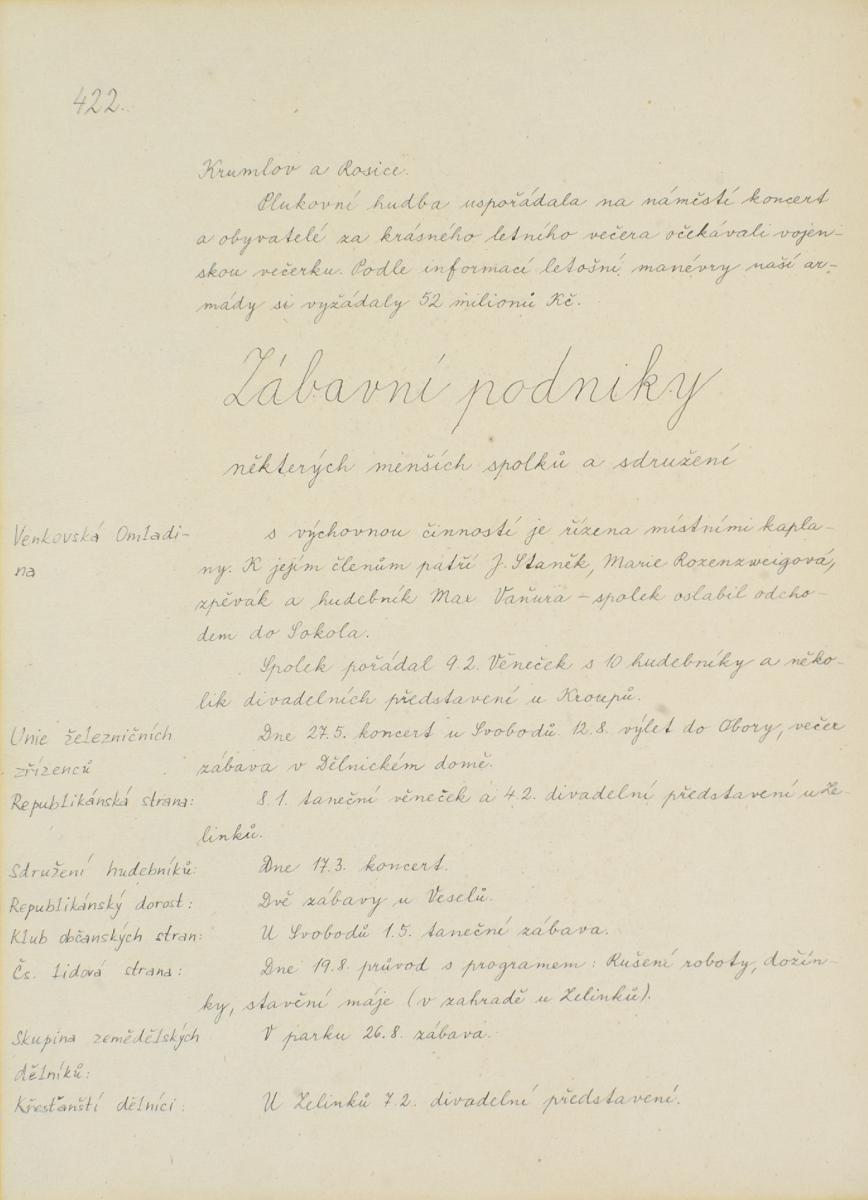 422.
Krumlov a Rosice.
Plukovní hudba uspořádala na náměstí koncert
a obyvatelé za krásného letního večera očekávali vojen-
skou večerku. Podle informací letošní manévry naší ar-
mády si vyžádaly 52 milionů Kč.
Zábavní podniky
některých menších spolků a sdružení
Venkovská Omladi- s výchovnou činností je řízena místními kapla-
na ny. K jejím členům patří J. Staněk, Marie Rozenzweigová,
zpěvák a hudebník Max Vaňura – spolek oslabil odcho-
dem do Sokola.
Spolek pořádal 9.2. Věneček s 10 hudebníky a něko-
lik divadelních představení u Kroupů.
Unie železničních Dne 27.5. koncert u Svobodů. 12.8. výlet do Obory, večer
zřízenců zábava v Dělnickém domě.
Republikánská strana: 8.1. taneční věneček a 4.2. divadelní představení u Ze-
linků.
Sdružení hudebníků: Dne 17.3. koncert.
Republikánský dorost: Dvě zábavy u Veselů.
Klub občanských stran: U Svobodů 1.5. taneční zábava.
Čs. lidová strana: Dne 19.8. průvod s programem: Rušení roboty, dožín-
ky, stavění máje (v zahradě u Zelinků).
Skupina zemědělských V parku 26.8. zábava.
dělníků:
Křesťanští dělníci: U Zelinků 7.2. divadelní představení.